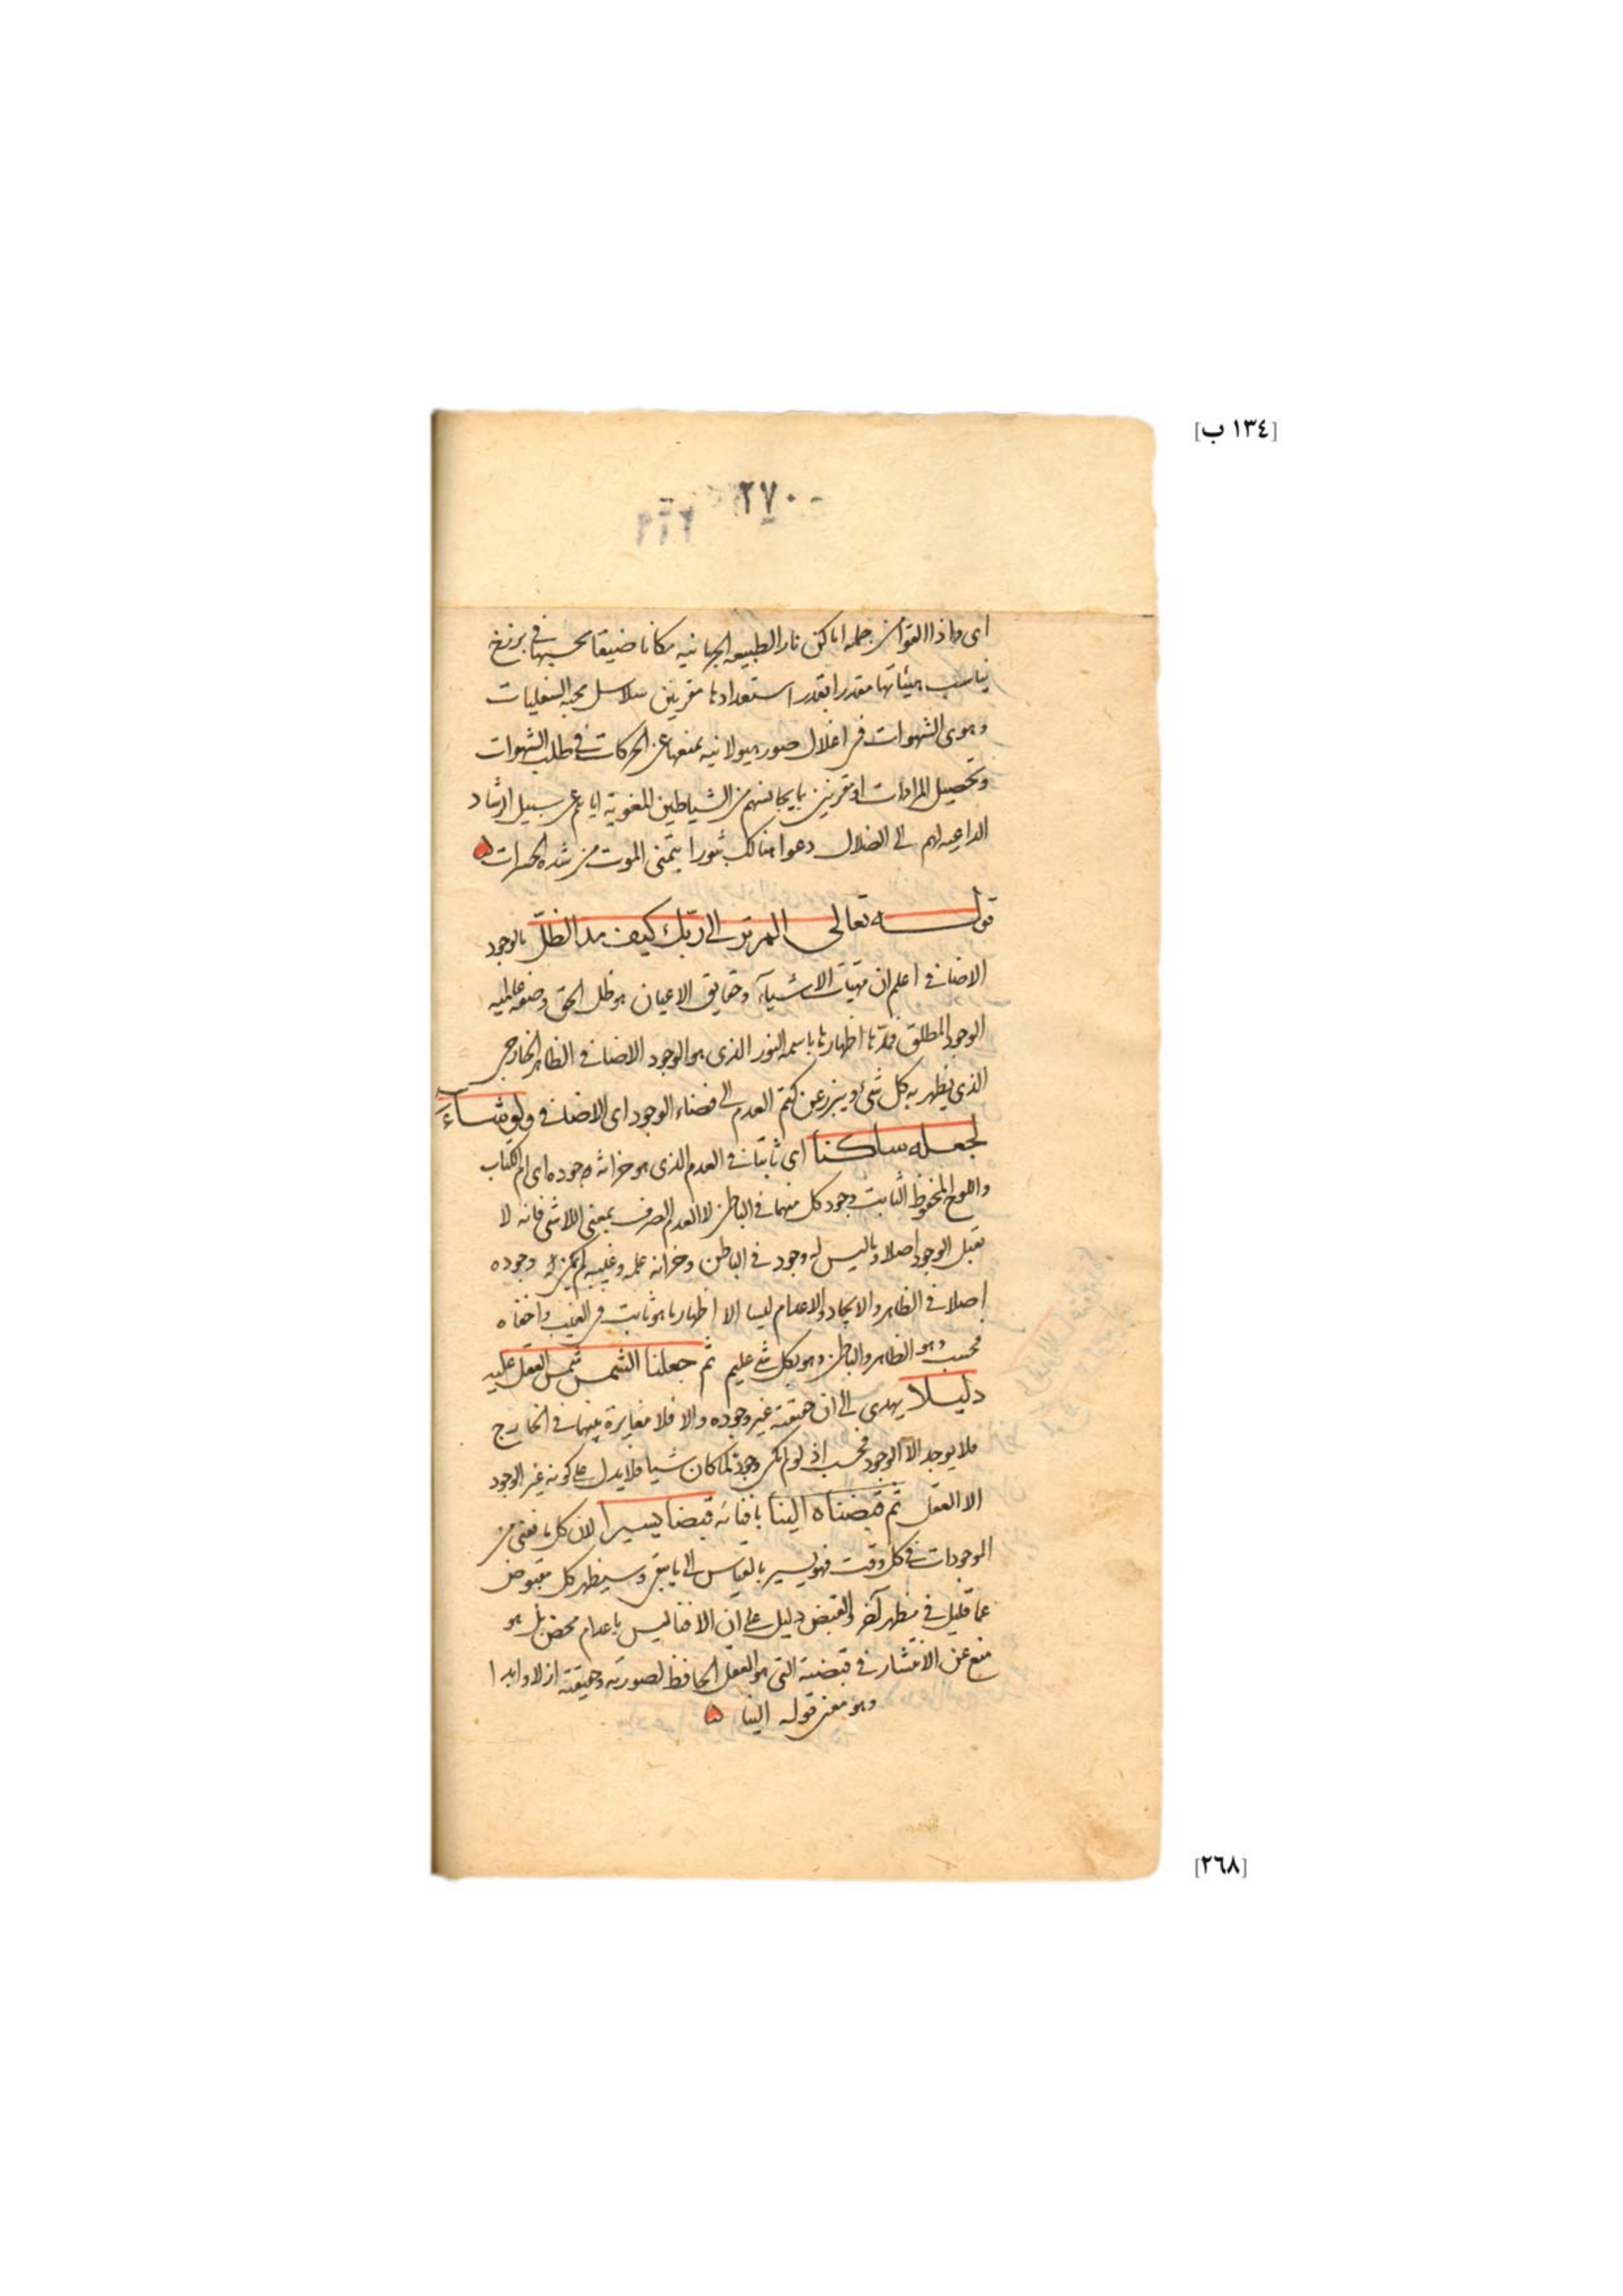 [١٣٤ ب]
٢٧٠
٢٦٩
اى واذا القوا من جمله اماكن نار الطبيعه الجسمانيه مكانا ضيقا بحبسها فى برزخ
يناسب هيئاتها مقدرا بقدر استعدادها مقرنين سلاسل محبه السفليات
وهوى الشهوات فى اغلال صور هيولانيه يمنعها عن الحركات فى طلب الشهوات
وتحصيل المرادات او مقرنين بما يجانسهم من الشياطين المغوية اياهم عن سبيل الرشاد
الداعيه لهم الى الضلال دعوا هنالك ثبورا يتمنى الموت من شده الحسرات
قوله تعالى الم تر الى ربك كيف مد الظلّ بالوجود
الاضافى اعلم ان مهيات الاشيآء وحقايق الاعيان هو ظل الحق وصفه عالميه
الوجود المطلق فمدّها اظهارها باسمه النور الذى هو الوجود الاضافى الظاهر الخارجى
الذى يظهر به كل شئ ويبرز عن كتم العدم الى فضاء الوجود اى الاضافى ولو شآء
لجعله ساكنا اى ثابتا فى العدم الذى هو خزانه وجوده اى ام الكتاب
واللوح المحفوظ الثابت وجود كل منهما فى الباطن لا العدم الصرف بمعنى اللاشى فانه لا
يقبل الوجود اصلا وما ليس له وجود فى الباطن وخزانه علمه وغيبه لم يمكن وجوده
اصلا فى الظاهر والايجاد والاعدام ليسا الا اظهار ما هو ثابت فى الغيب واخفاه
فحسب وهو الظاهر والباطن وهو بكل شى عليم ثم جعلنا الشمس شمس العقل عليه
دليلا يهدى الى ان حقيقته غير وجوده والا فلا مغايرة بينهما فى الخارج
فلا يوجد الا الوجود فحسب اذ لو لم يكن وجود لما كان شيا فلا يدل على كونه غير الوجود
الا العقل ثم قبضناه الينا بافنائه قبضا يسيرا لان كل ما يفنى من
الموجودات فى كل وقت فهو يسير بالقياس الى ما يبقى وسيظهر كل مقبوض
عما قليل فى مظهر آخر والقبض دليل على ان الافنا ليس باعدام محض بل هو
منع عن الانتشار فى قبضته التى هو العقل الحافظ لصورته وحقيقته ازلا وابدا
وهو معنى قوله الينا
[٢٦٨]